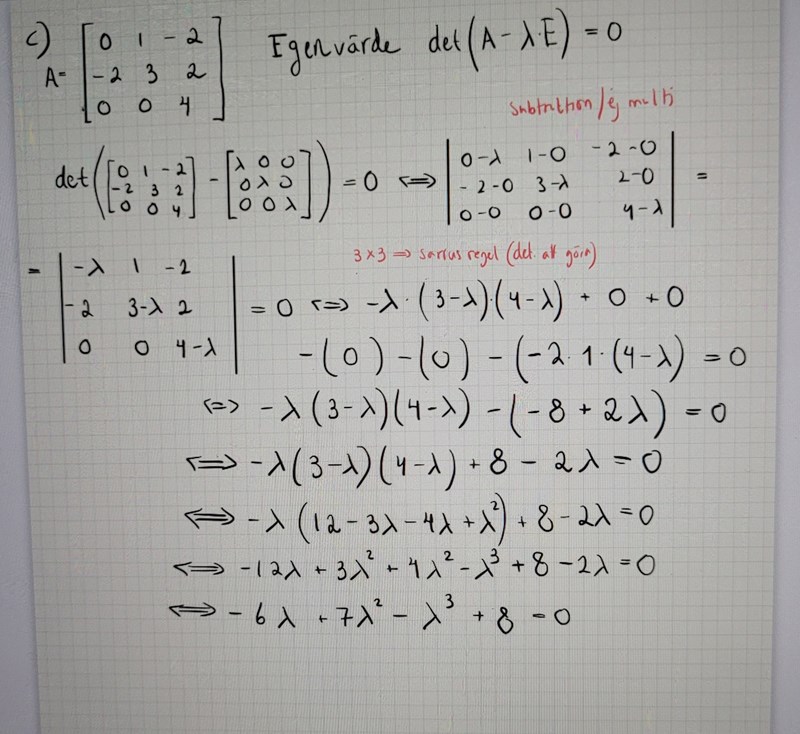 c) A= [ 0 1 -2 ; -2 3 2 ; 0 0 4 ] Egenvärde det(A - λ·E) = 0
subtraktion / ej multi
det([ 0 1 -2 ; -2 3 2 ; 0 0 4 ] - [ λ 0 0 ; 0 λ 0 ; 0 0 λ ]) = 0 <=> | 0-λ 1-0 -2-0 ; -2-0 3-λ 2-0 ; 0-0 0-0 4-λ | =
3×3 => sarrus regel (det. att göra)
= | -λ 1 -2 ; -2 3-λ 2 ; 0 0 4-λ | = 0 <=> -λ·(3-λ)·(4-λ) + 0 + 0
-(0) - (0) - (-2·1·(4-λ) = 0
<=> -λ(3-λ)(4-λ) - (-8 + 2λ) = 0
<=> -λ(3-λ)(4-λ) + 8 - 2λ = 0
<=> -λ(12 - 3λ - 4λ + λ²) + 8 - 2λ = 0
<=> -12λ + 3λ² + 4λ² - λ³ + 8 - 2λ = 0
<=> -6λ + 7λ² - λ³ + 8 = 0